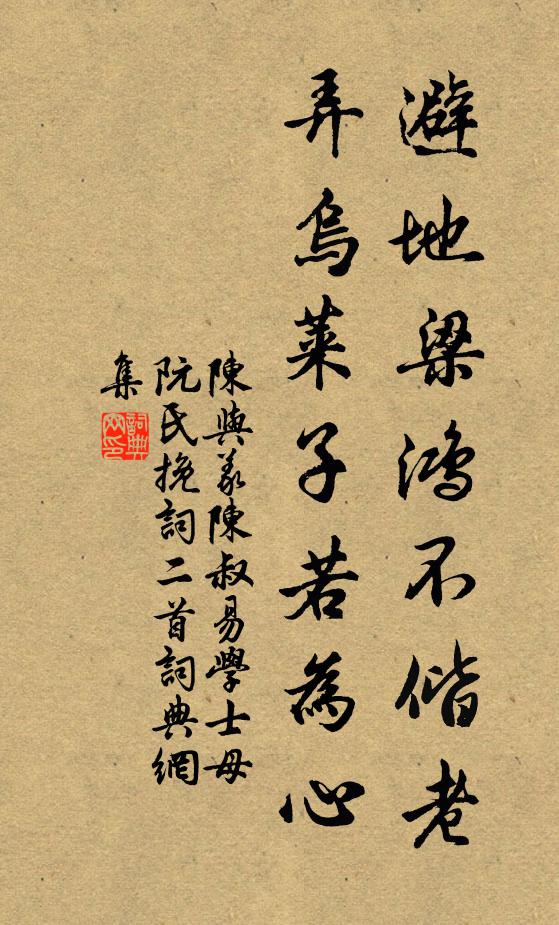 避地梁鴻不偕老
弄烏萊子若為心
陳與義陳叔易學士母
阮氏挽詞二首詞典網
集
詞典
网印